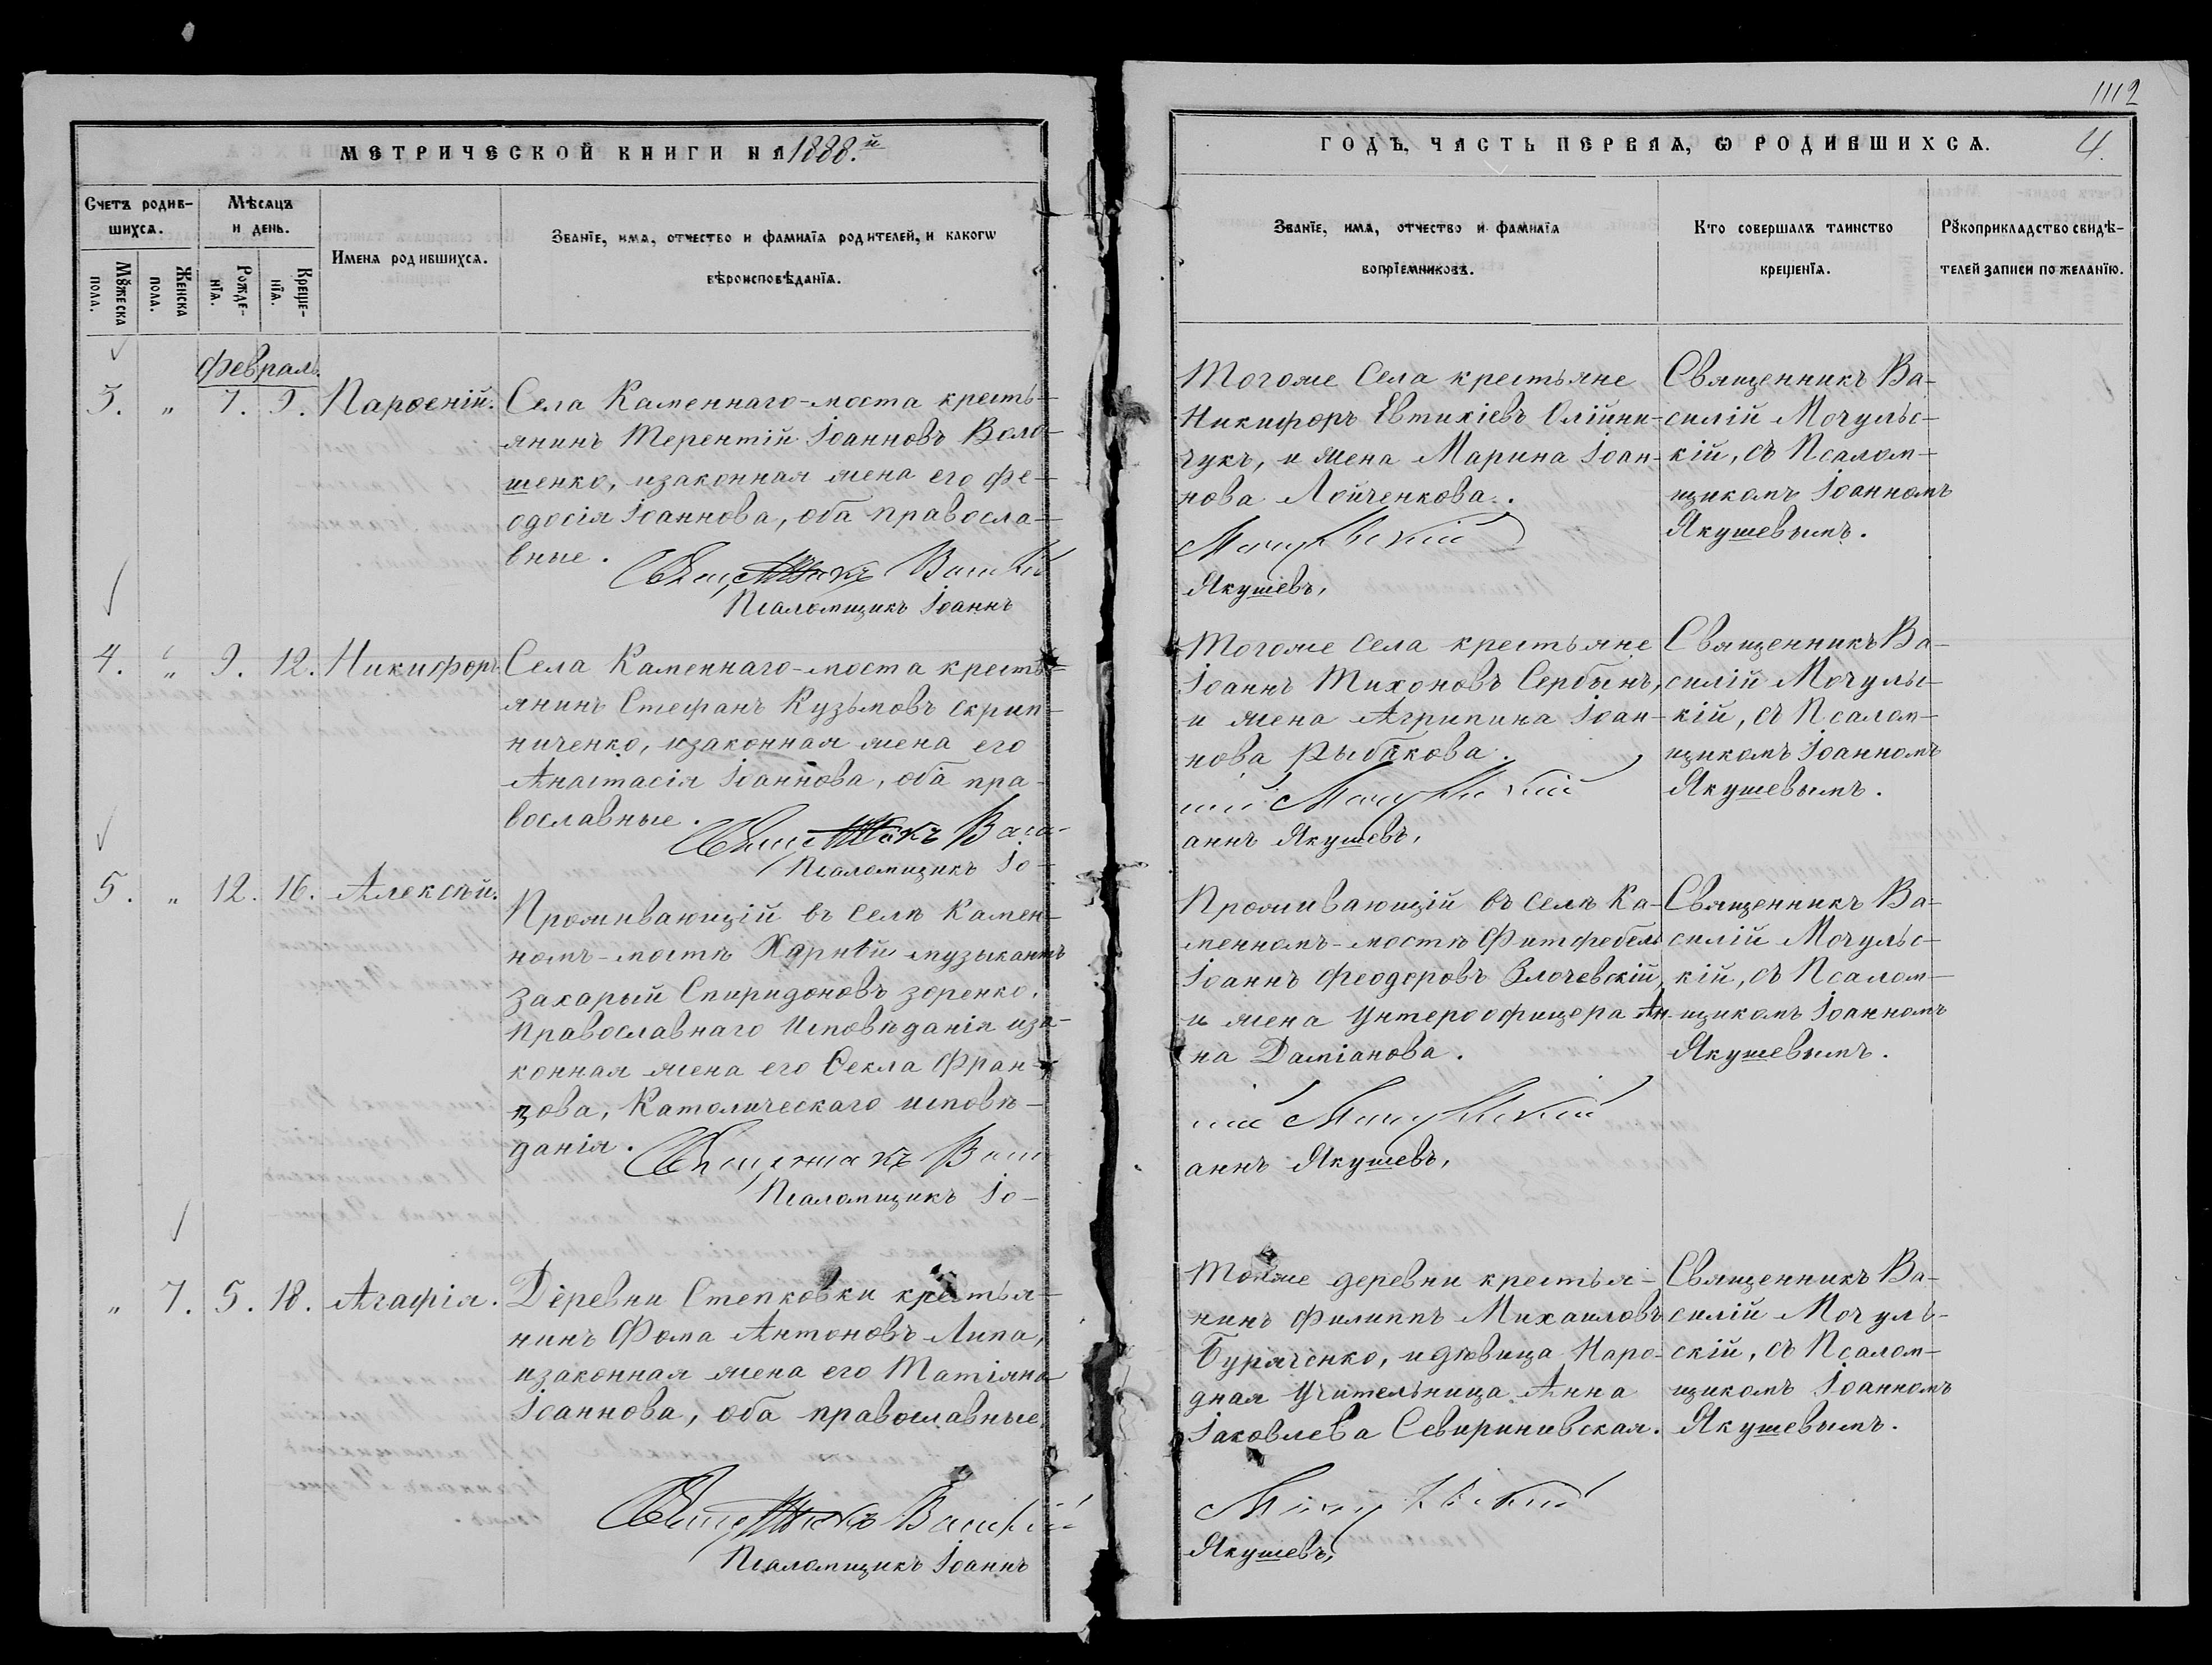 1112
МЕТРИЧЕСКОЙ КНИГИ НА 1888.й
ГОДЪ, ЧАСТЬ ПЕРВАЯ, Ѡ РОДИВШИХСѦ.
4.
Счетъ родив-
шихсѧ.
Мѣсяцъ
и день.
Мꙋжеска
пола.
Женска
пола.
Рожде-
нїѧ.
Креще-
нїѧ.
Имена родившихсѧ.
Званїе, имѧ, отчество и фамилїѧ родителей, и какогѡ
вѣроисповѣданїѧ.
Званїе, имѧ, отчество и фамилїѧ
воспрїемниковъ.
Кто совершалъ таинство
крещенїѧ.
Рꙋкоприкладство свидѣ-
телей записи по желанїю.
Февраль.
3. „ 7. 9. Парѳеній.
Села Каменнаго-моста кресть-
янинъ Терентій Іоанновъ Воло-
шенко, изаконная жена его Фе-
одосія Іоаннова, оба правосла-
вные.
Священникъ Василій
Псаломщикъ Іоаннъ
Тогоже Села крестьяне
Никифоръ Евтихіевъ Олійни-
чукъ, и жена Марина Іоан-
нова Лойченкова.
Мочульскій
Якушевъ,
Священникъ Ва-
силій Мочульс-
кій, съ Псалом-
щикомъ Іоанномъ
Якушевымъ.
4. „ 9. 12. Никифоръ.
Села Каменнаго-моста кресть-
янинъ Стефанъ Кузьмовъ Скрип-
ниченко, изаконная жена его
Анастасія Іоаннова, оба пра-
вославные.
Священникъ Васи-
Псаломщикъ Іо-
Тогоже села крестьяне
Іоаннъ Тихоновъ Сербынъ,
и жена Агрипина Іоан-
нова Рыбакова.
лій Мочульскій
аннъ Якушевъ,
Священникъ Ва-
силій Мочульс-
кій, съ Псалом-
щикомъ Іоанномъ
Якушевымъ.
5. „ 12. 16. Алексѣй.
Проживающій въ селѣ Камен-
номъ-мостѣ музыкантъ
Захарый Спиридоновъ Зоренко.
Православнаго Исповѣданія иза-
конная жена его Ѳекла Фран-
цова, Католическаго исповѣ-
данія.
Священникъ Васи
Псаломщикъ Іо-
Проживающій въ селѣ Ка-
менномъ-мостѣ Фитфебель
Іоаннъ Феодоровъ Злочевскій,
и жена Унтероофицера Ан-
на Даміанова.
лій Мочульскій
аннъ Якушевъ,
Священникъ Ва-
силій Мочульс-
кій, съ Псалом-
щикомъ Іоанномъ
Якушевымъ.
„ 7. 5. 18. Агафія.
Деревни Степковки крестья-
нинъ Фома Антоновъ Липа,
изаконная жена его Татіяна
Іоаннова, оба православные,
Священникъ Василій
Псаломщикъ Іоаннъ
Тойже деревни крестья-
нинъ Филиппъ Михаиловъ
Буряченко, и дѣвица Наро-
дная Учительница Анна
Іаковлева Севириновская.
Мочульскій
Якушевъ,
Священникъ Ва-
силій Мочуль-
скій, съ Псалом-
щикомъ Іоанномъ
Якушевымъ.